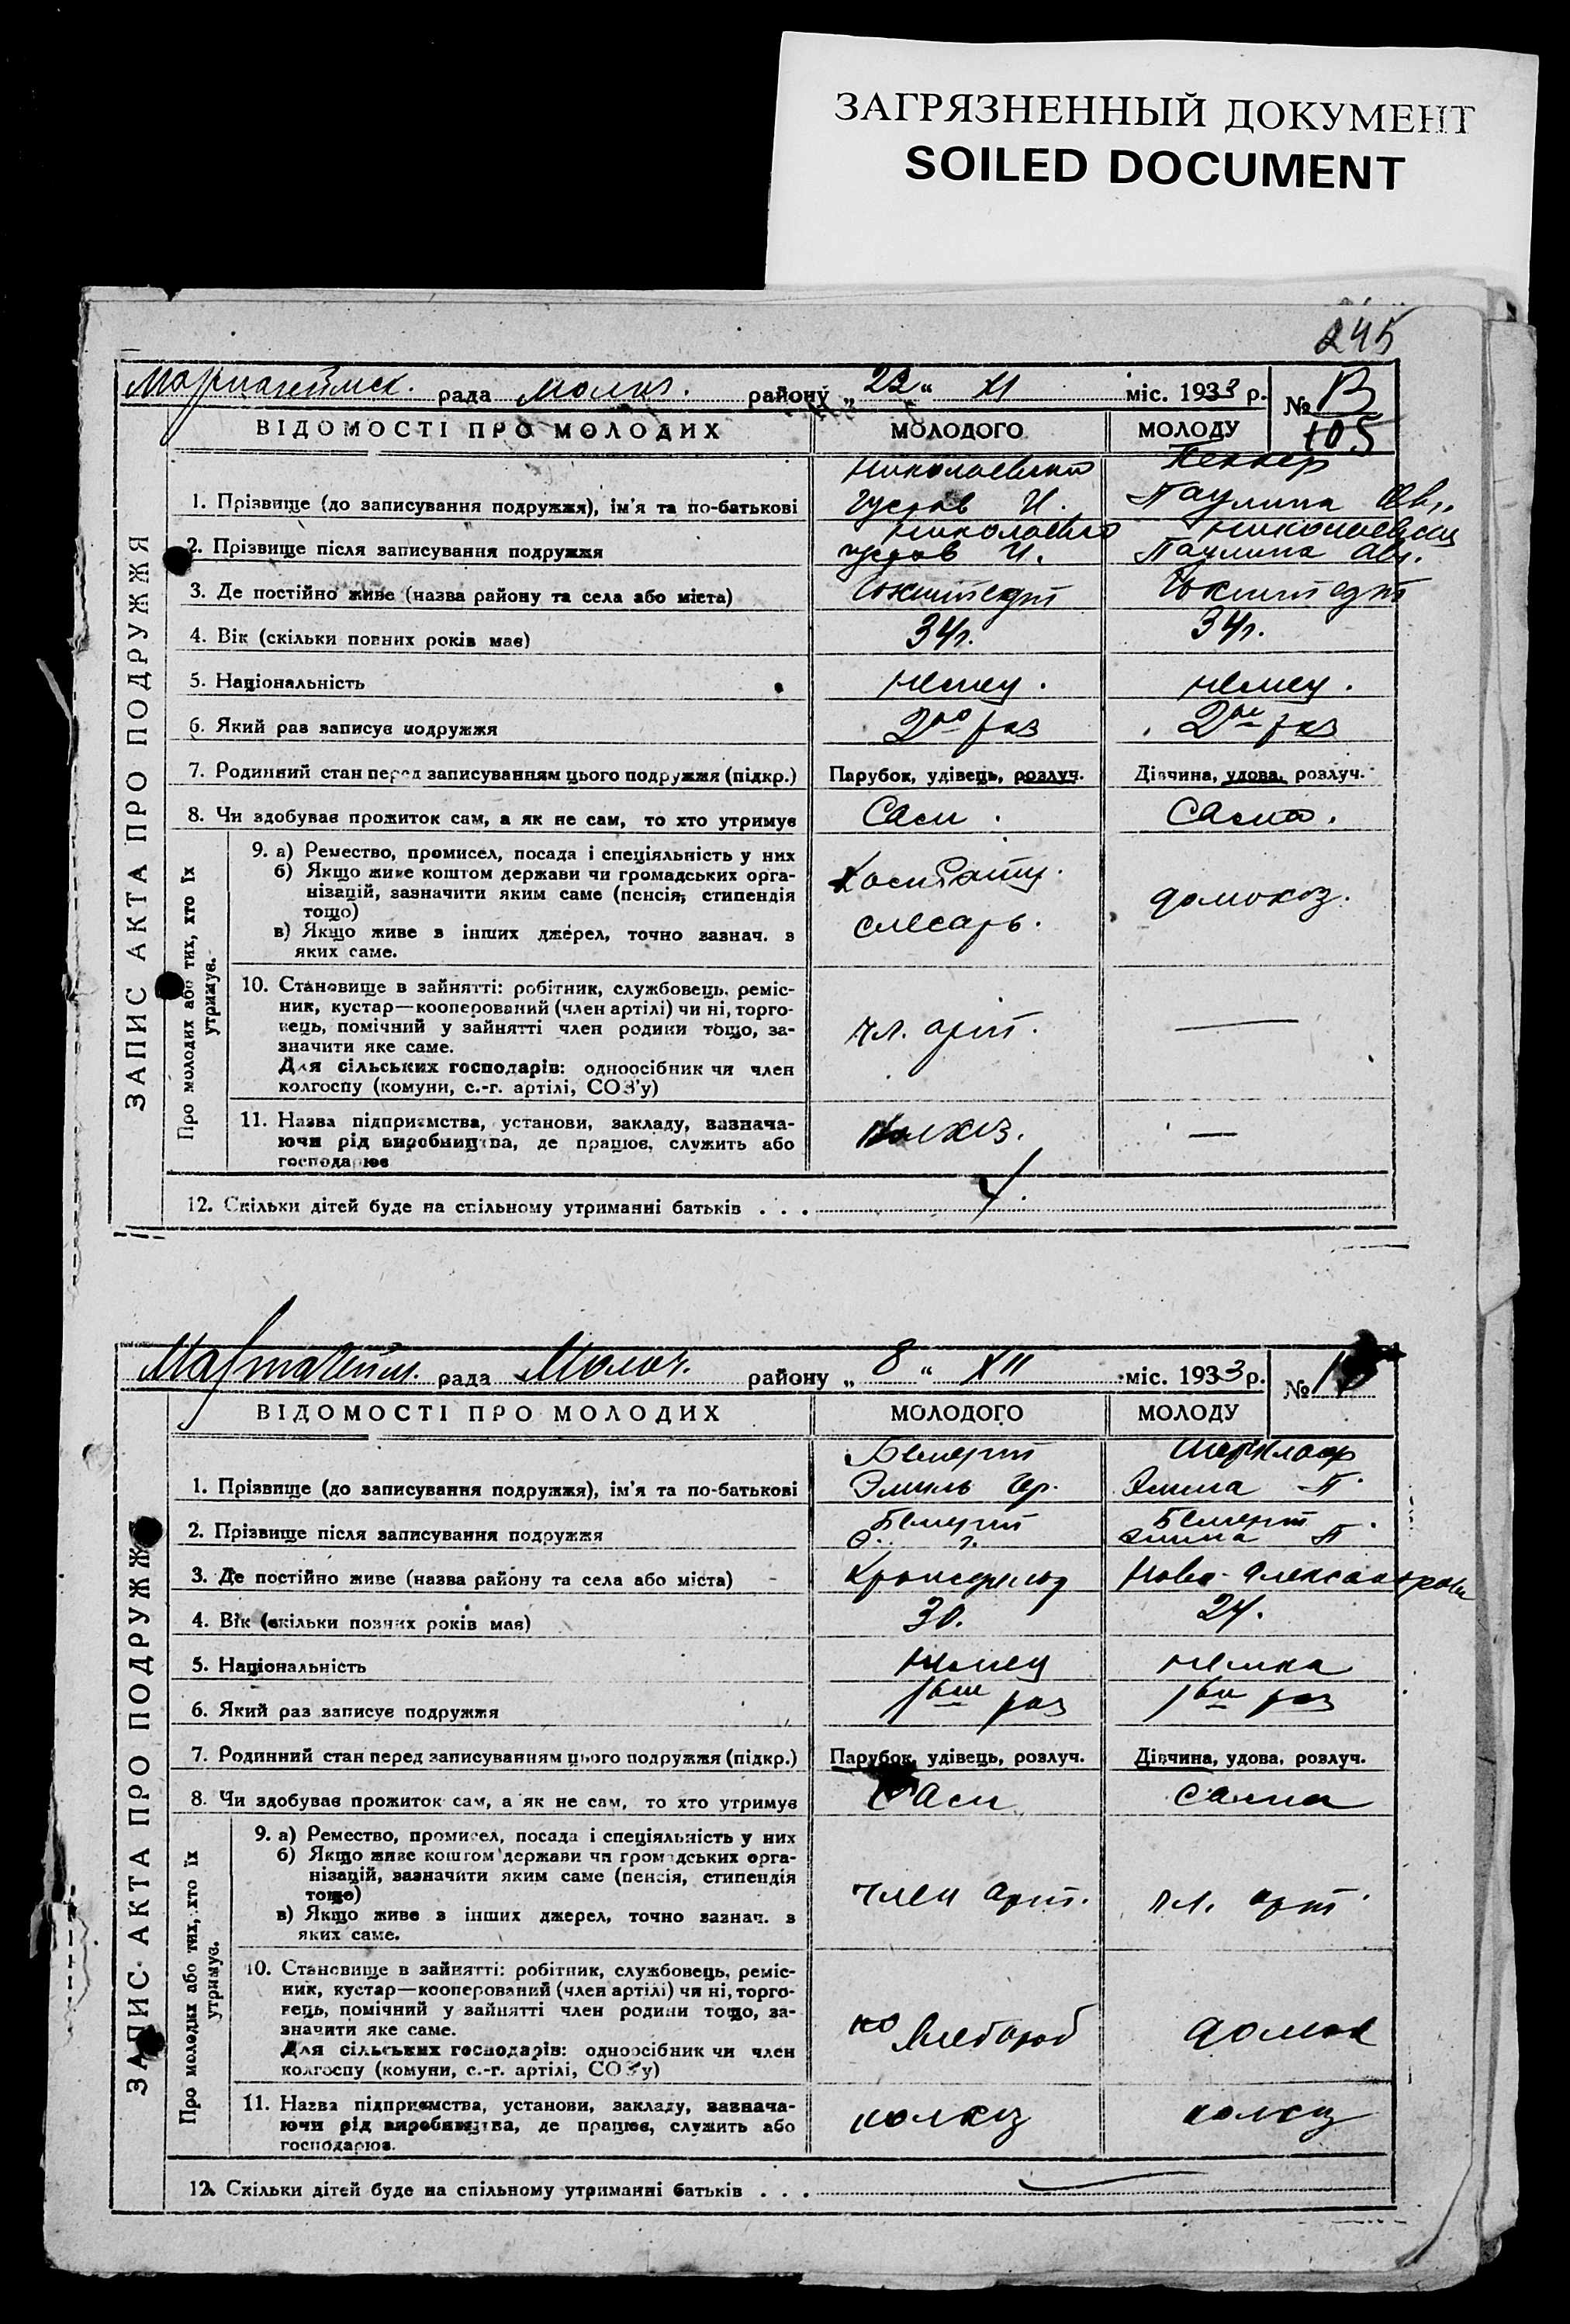 ЗАГРЯЗНЕННЫЙ ДОКУМЕНТ
SOILED DOCUMENT
245
рада Молоч. району „22“ XI міс. 1933 р. №
105
ВІДОМОСТІ ПРО МОЛОДИХ МОЛОДОГО МОЛОДУ
ЗАПИС АКТА ПРО ПОДРУЖЖЯ
1. Прізвище (до записування подружжя), ім'я та по-батькові Густав И. Паулина
2. Прізвище після записування подружжя Густав И. Паулина
3. Де постійно живе (назва району та села або міста)
4. Вік (скільки повних років має) 34г. 34г.
5. Національність немец. немец.
6. Який раз записує подружжя 2ой раз 2ой раз
7. Родинний стан перед записуванням цього подружжя (підкр.) Парубок, удівець, розлуч. Дівчина, удова, розлуч.
8. Чи здобував прожиток сам, а як не сам, то хто утримує Сам. Сама.
Про молодих або тих, хто їх утримує.
9. а) Ремество, промисел, посада і спеціяльність у них
б) Якщо живе коштом держави чи громадських орга-
нізацій, зазначити яким саме (пенсія, стипендія
тощо)
в) Якщо живе з інших джерел, точно зазнач. з
яких саме.
слесарь. домохоз.
10. Становище в зайнятті: робітник, службовець, реміс-
ник, кустар—кооперований (член артілі) чи ні, торго-
вець, помічний у зайнятті член родини тощо, за-
значити яке саме.
Для сільських господарів: одноосібник чи член
колгоспу (комуни, с.-г. артілі, СОЗ'у)
чл. арт. —
11. Назва підприємства, установи, закладу, зазнача-
ючи рід виробництва, де працює, служить або
господарює
колхоз. —
12. Скільки дітей буде на спільному утриманні батьків . . .
рада Молоч. району „8“ XII міс. 1933 р. №
ВІДОМОСТІ ПРО МОЛОДИХ МОЛОДОГО МОЛОДУ
ЗАПИС АКТА ПРО ПОДРУЖЖЯ
1. Прізвище (до записування подружжя), ім'я та по-батькові Эмиль Эмма П
2. Прізвище після записування подружжя Эмма П
3. Де постійно живе (назва району та села або міста) Кронсфельд Ново-Александровк
4. Вік (скільки повних років має) 30. 24.
5. Національність немец немка
6. Який раз записує подружжя 1вый раз 1вый раз
7. Родинний стан перед записуванням цього подружжя (підкр.) Парубок, удівець, розлуч. Дівчина, удова, розлуч.
8. Чи здобував прожиток сам, а як не сам, то хто утримує Сам Сама
Про молодих або тих, хто їх утримує.
9. а) Ремество, промисел, посада і спеціяльність у них
б) Якщо живе коштом держави чи громадських орга-
нізацій, зазначити яким саме (пенсія, стипендія
тощо)
в) Якщо живе з інших джерел, точно зазнач. з
яких саме.
член арт. чл. арт
10. Становище в зайнятті: робітник, службовець, реміс-
ник, кустар—кооперований (член артілі) чи ні, торго-
вець, помічний у зайнятті член родини тощо, за-
значити яке саме.
Для сільських господарів: одноосібник чи член
колгоспу (комуни, с.-г. артілі, СОЗ'у)
хлебороб
11. Назва підприємства, установи, закладу, зазнача-
ючи рід виробництва, де працює, служить або
господарює.
колхоз колхоз
12. Скільки дітей буде на спільному утриманні батьків . . .